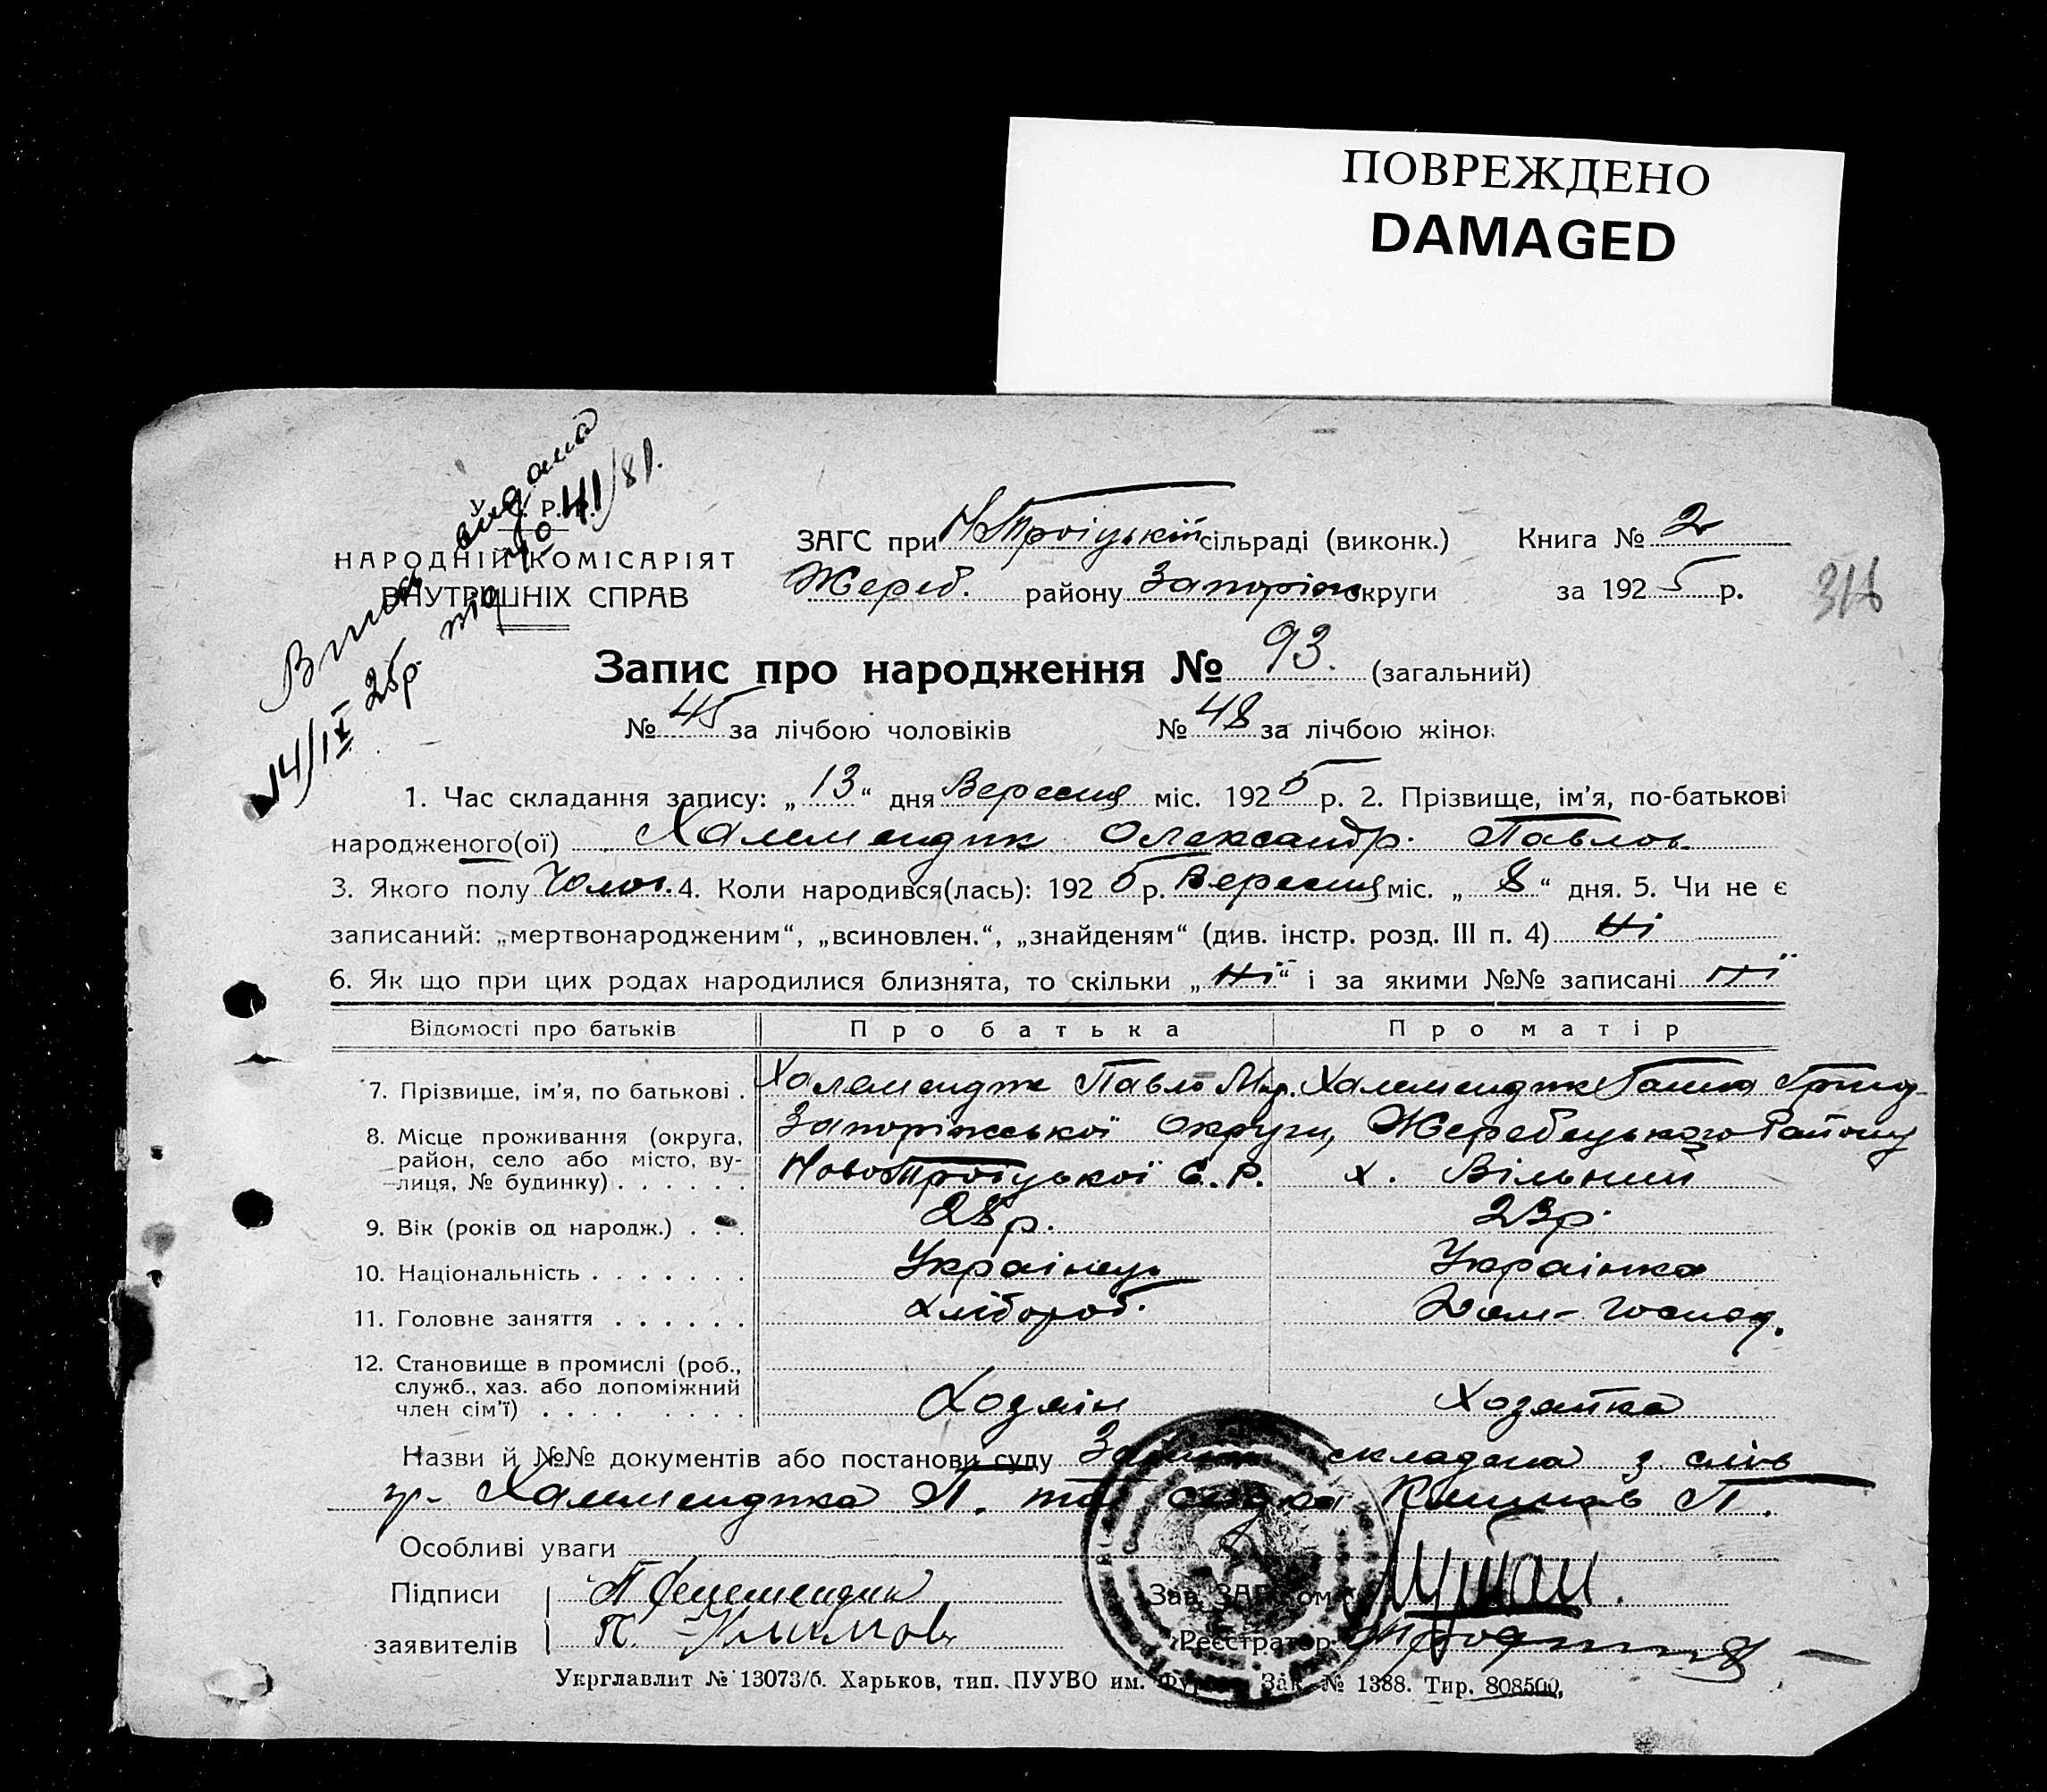 ПОВРЕЖДЕНО
DAMAGED
Випись видана
14/IX 25р. за № 41/81.
У. С. Р. Р.
НАРОДНІЙ КОМІСАРІЯТ
ВНУТРІШНІХ СПРАВ
ЗАГС при Н Троіцькій сільраді (виконк.) Книга № 2
Жереб. району Запоріж округи за 1925 р.
316
Запис про народження № 93. (загальний)
№ 45 за лічбою чоловіків № 48 за лічбою жінок
1. Час складання запису: „13“ дня Вересня міс. 1925 р. 2. Прізвище, ім’я, по-батькові
народженого(ої) Халемендик Олександр. Павлов.
3. Якого полу Чолов. 4. Коли народився(лась): 1925 р. Вересня міс. „8“ дня. 5. Чи не є
записаний: „мертвонародженим“, „всиновлен.“, „знайденям“ (див. інстр. розд. III п. 4) Ні
6. Як що при цих родах народилися близнята, то скільки „Ні“ і за якими №№ записані Ні
Відомості про батьків Про батька Про матір
7. Прізвище, ім’я, по батькові . Халемендик Павло Халемендик Ганна Григор
8. Місце проживання (округа, район, село або місто, вулиця, № будинку) . . . . . . Запоріжської Округи, Жеребецького Району
НовоТроіцької С. Р. х. Вільний
9. Вік (років од народж.) . . . 28 р. 23 р.
10. Національність . . . . . . . Украінець Украінка
11. Головне заняття . . . . . . хлібороб. Дом- господ.
12. Становище в промислі (роб.,
служб., хаз. або допоміжний
член сім’ї) . . . . . . . . Хозяін Хозяйка
Назви й №№ документів або постанови суду Запись складана з слів
гр. Халемендика П. та свідка Климов П.
Особливі уваги
Підписи П Халемендик Зав. ЗАГС’ом
заявителів П. Климов Реєстратор
Укрглавлит № 13073/б. Харьков, тип. ПУУВО им. Фрунзе. Зак. № 1388. Тир. 808500,